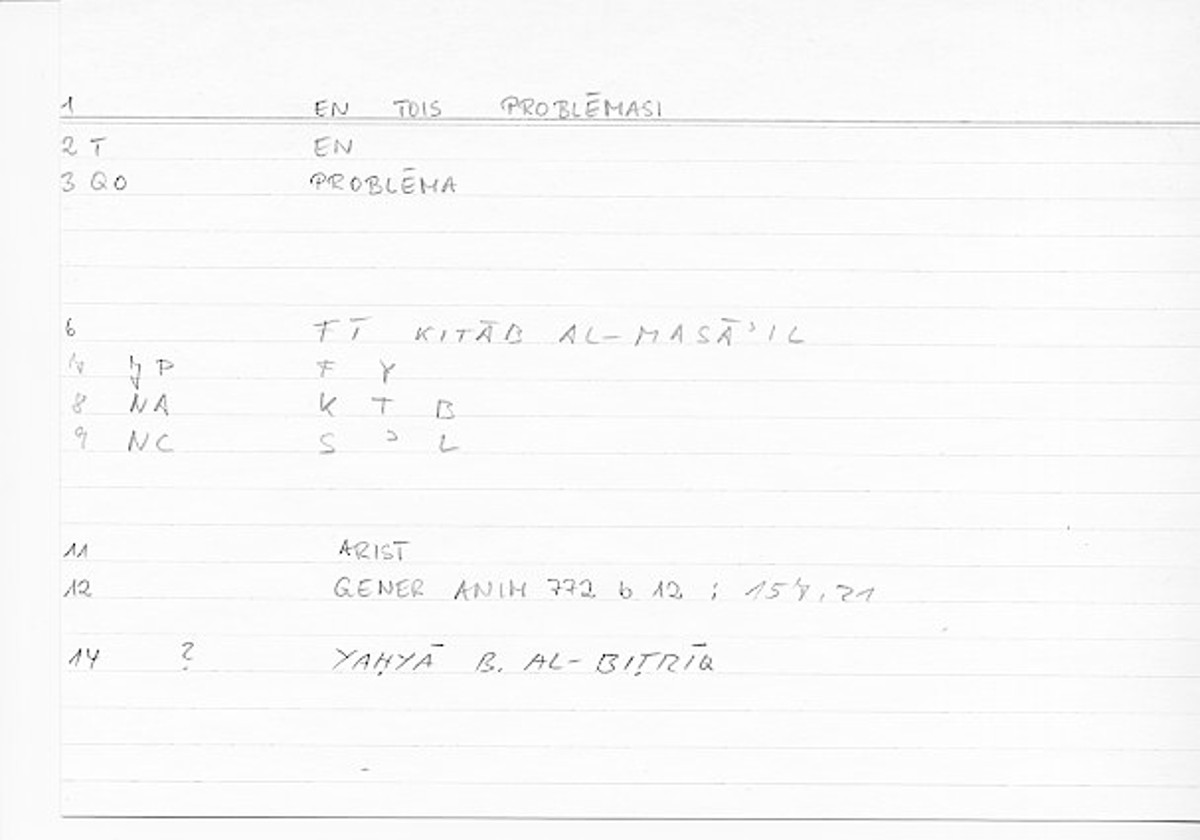 1 EN TOIS PROBLĒMASI
2 T EN
3 QO PROBLĒMA
6 FĪ KITĀB AL-MASĀʾIL
7 P F Y
8 NA K T B
9 NC S ʾ L
11 ARIST
12 GENER ANIM 772 b 12 ; 157,21
14 ? YAḤYĀ B. AL-BIṬRĪQ